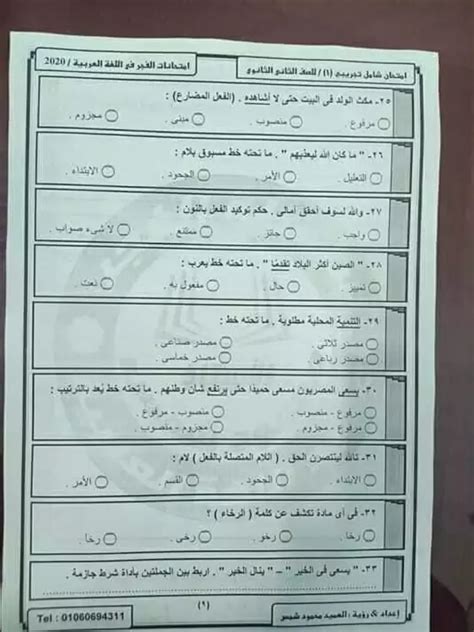 امتحان شامل تجريبى (١) / للصف الثانى الثانوى
امتحانات الفجر فى اللغة العربية / 2020
٢٥- مكث الولد فى البيت حتى لا أشاهده . (الفعل المضارع) :
مرفوع . منصوب . مبنى . مجزوم .
٢٦- " ما كان الله ليعذبهم " . ما تحته خط مسبوق بلام :
التعليل . الأمر . الجحود . الابتداء .
٢٧- والله لسوف أحقق أمالى . حكم توكيد الفعل بالنون :
واجب . جائز . ممتنع . لا شىء صواب .
٢٨- " الصين أكثر البلاد تقدمًا " . ما تحته خط يعرب :
تمييز . حال . مفعول به . نعت .
٢٩- التنمية المحلية مطلوبة . ما تحته خط :
مصدر ثلاثى . مصدر صناعى .
مصدر رباعى . مصدر خماسى .
٣٠- يسعى المصريون مسعى حميدًا حتى يرتفع شأن وطنهم . ما تحته خط يُعد بالترتيب :
مرفوع - منصوب . منصوب - مرفوع .
مرفوع - مجزوم . مجزوم - منصوب .
٣١- تالله لينتصرن الحق . (اللام المتصلة بالفعل ) لام :
الابتداء . الجحود . القسم . الأمر .
٣٢- فى أى مادة تكشف عن كلمة ( الرخاء ) ؟
رخأ . رخو . رخى . رخا .
٣٣- " يسعى فى الخير " – " ينال الخير " . اربط بين الجملتين بأداة شرط جازمة .
إعداد & رؤية : العميد محمود شمس
(١)
Tel : 01060694311